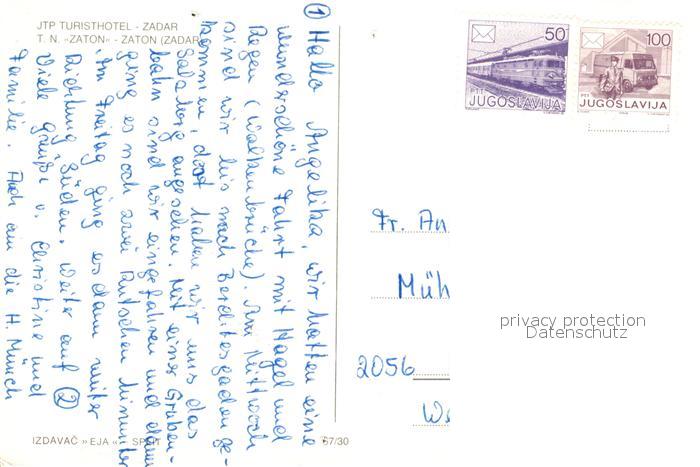 JTP TURISTHOTEL - ZADAR
T. N. »ZATON« - ZATON (ZADAR
① Hallo Angelika, wir hatten eine
wunderschöne Fahrt mit Hagel und
Regen (Wolkenbrüche). Am Mittwoch
sind wir bis nach Berchtesgaden ge-
kommen, dort haben wir uns das
Salzberg angesehen. Mit einer Gruben-
bahn sind wir eingefahren und dann
ging es noch zwei Rutschen hinunter
Am Freitag ging es dann weiter
Richtung Süden. Weiter auf ②
Viele Grüße v. Christine und
Familie. Auch an die H. Münch
IZDAVAČ » EJA « - SPLIT
67/30
50
PTT JUGOSLAVIJA
100
PTT JUGOSLAVIJA
Fr. An
Müh
2056
privacy protection
Datenschutz